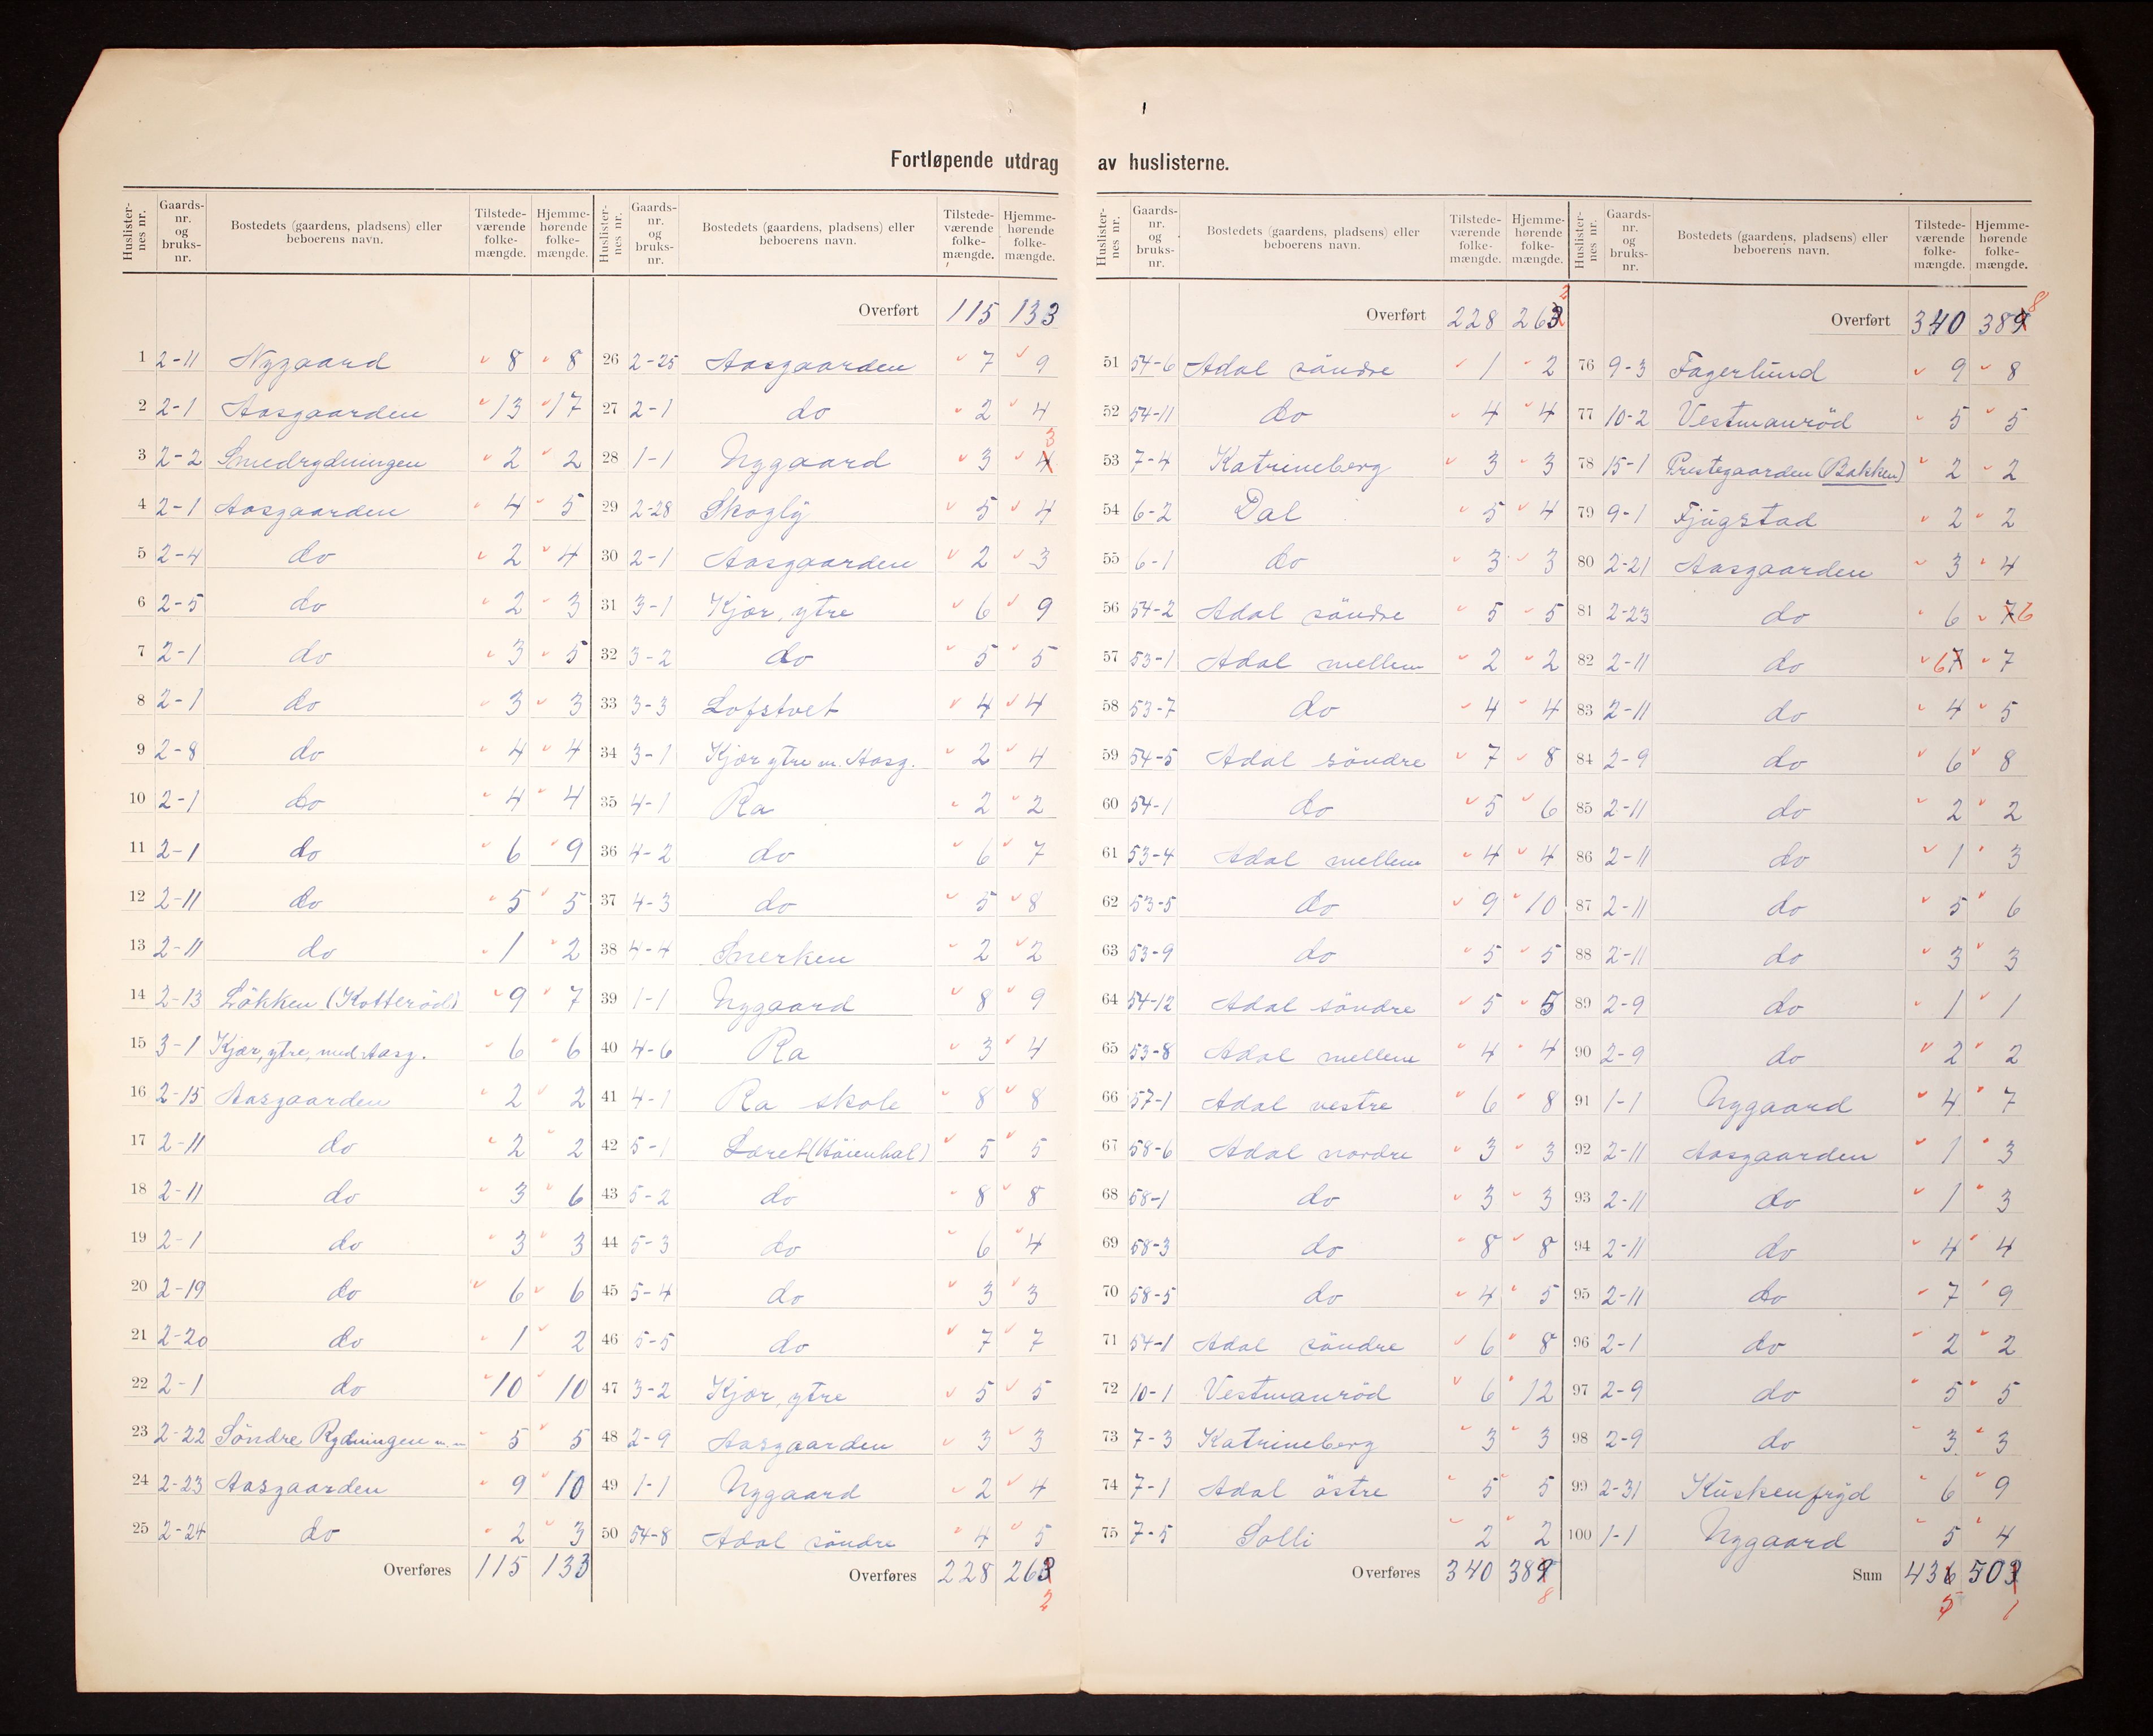 Fortløpende utdrag av huslisterne.
Huslisternes nr. Gaards-nr. og bruks-nr. Bostedets (gaardens, pladsens) eller beboerens navn. Tilstedeværende folkemængde. Hjemmehørende folkemængde.
1 2-11 Nygaard 8 8
2 2-1 Aasgaarden 13 17
3 2-2 Smedrydningen 2 2
4 2-1 Aasgaarden 4 5
5 2-4 do 2 4
6 2-5 do 2 3
7 2-1 do 3 5
8 2-1 do 3 3
9 2-8 do 4 4
10 2-1 do 4 4
11 2-1 do 6 9
12 2-11 do 5 5
13 2-11 do 1 2
14 2-13 Løkken (Kotterød) 9 7
15 3-1 Kjær, ytre, med Aasg. 6 6
16 2-15 Aasgaarden 2 2
17 2-11 do 2 2
18 2-11 do 3 6
19 2-1 do 3 3
20 2-19 do 6 6
21 2-20 do 1 2
22 2-1 do 10 10
23 2-22 Söndre Rydningen 5 5
24 2-23 Aasgaarden 9 10
25 2-24 do 2 3
Overføres 115 133
Huslisternes nr. Gaards-nr. og bruks-nr. Bostedets (gaardens, pladsens) eller beboerens navn. Tilstedeværende folkemængde. Hjemmehørende folkemængde.
Overført 115 133
26 2-25 Aasgaarden 7 9
27 2-1 do 2 4
28 1-1 Nygaard 3 4 3
29 2-28 Skogly 5 4
30 2-1 Aasgaarden 2 3
31 3-1 Kjær, ytre 6 9
32 3-2 do 5 5
33 3-3 Lofstvet 4 4
34 3-1 Kjær ytre m. Aasg. 2 4
35 4-1 Ra 2 2
36 4-2 do 6 7
37 4-3 do 5 8
38 4-4 Snerken 2 2
39 1-1 Nygaard 8 9
40 4-6 Ra 3 4
41 4-1 Ra skole 8 8
42 5-1 Løret (Høienhal) 5 5
43 5-2 do 8 8
44 5-3 do 6 4
45 5-4 do 3 3
46 5-5 do 7 7
47 3-2 Kjær, ytre 5 5
48 2-9 Aasgaarden 3 3
49 1-1 Nygaard 2 4
50 54-8 Adal söndre 4 5
Overføres 228 263 2
Huslisternes nr. Gaards-nr. og bruks-nr. Bostedets (gaardens, pladsens) eller beboerens navn. Tilstedeværende folkemængde. Hjemmehørende folkemængde.
Overført 228 263 2
51 54-6 Adal söndre 1 2
52 54-11 do 4 4
53 7-4 Katrineberg 3 3
54 6-2 Dal 5 4
55 6-1 do 3 3
56 54-2 Adal söndre 5 5
57 53-1 Adal mellem 2 2
58 53-7 do 4 4
59 54-5 Adal söndre 7 8
60 54-1 do 5 6
61 53-4 Adal mellem 4 4
62 53-5 do 9 10
63 53-9 do 5 5
64 54-12 Adal söndre 5 5
65 53-8 Adal mellem 4 4
66 57-1 Adal vestre 6 8
67 58-6 Adal nordre 3 3
68 58-1 do 3 3
69 58-3 do 8 8
70 58-5 do 4 5
71 54-1 Adal söndre 6 8
72 10-1 Vestmanröd 6 12
73 7-3 Katrineberg 3 3
74 7-1 Adal östre 5 5
75 7-5 Solli 2 2
Overføres 340 389 8
Huslisternes nr. Gaards-nr. og bruks-nr. Bostedets (gaardens, pladsens) eller beboerens navn. Tilstedeværende folkemængde. Hjemmehørende folkemængde.
Overført 340 389 8
76 9-3 Fagerlund 9 8
77 10-2 Vestmanröd 5 5
78 15-1 Prestegaarden (Bakken) 2 2
79 9-1 Fjugstad 2 2
80 2-21 Aasgaarden 3 4
81 2-23 do 6 7 6
82 2-11 do 6 7 7
83 2-11 do 4 5
84 2-9 do 6 8
85 2-11 do 2 2
86 2-11 do 1 3
87 2-11 do 5 6
88 2-11 do 3 3
89 2-9 do 1 1
90 2-9 do 2 2
91 1-1 Nygaard 4 7
92 2-11 Aasgaarden 1 3
93 2-11 do 1 3
94 2-11 do 4 4
95 2-11 do 7 9
96 2-1 do 2 2
97 2-9 do 5 5
98 2-9 do 3 3
99 2-31 Kuskenfryd 6 9
100 1-1 Nygaard 5 4
Sum 436 503
5 1